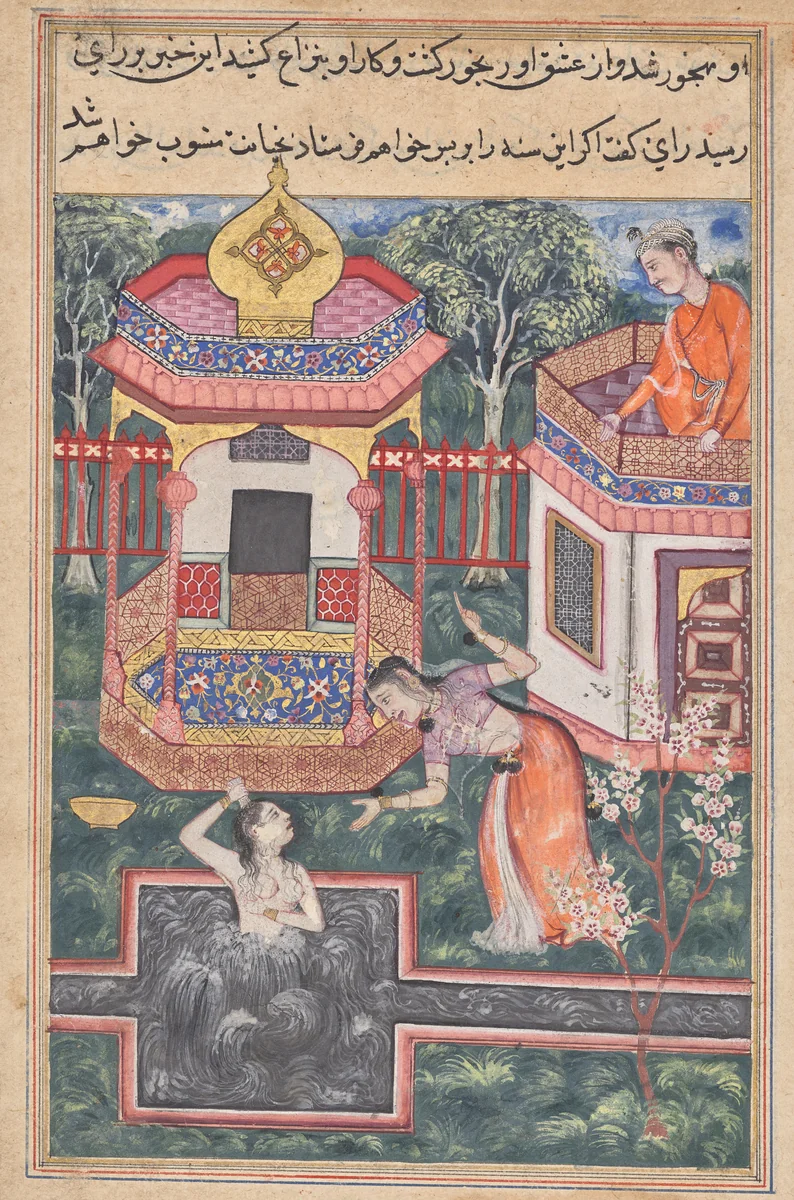 او مهجور شد و از عشق او رنجور کشت و کار او بنزاع کشید این خبر بر رای
رسید رای کفت اکر این سنه را بر پسر خواهم فرستاد بخیانت منسوب خواهم شد